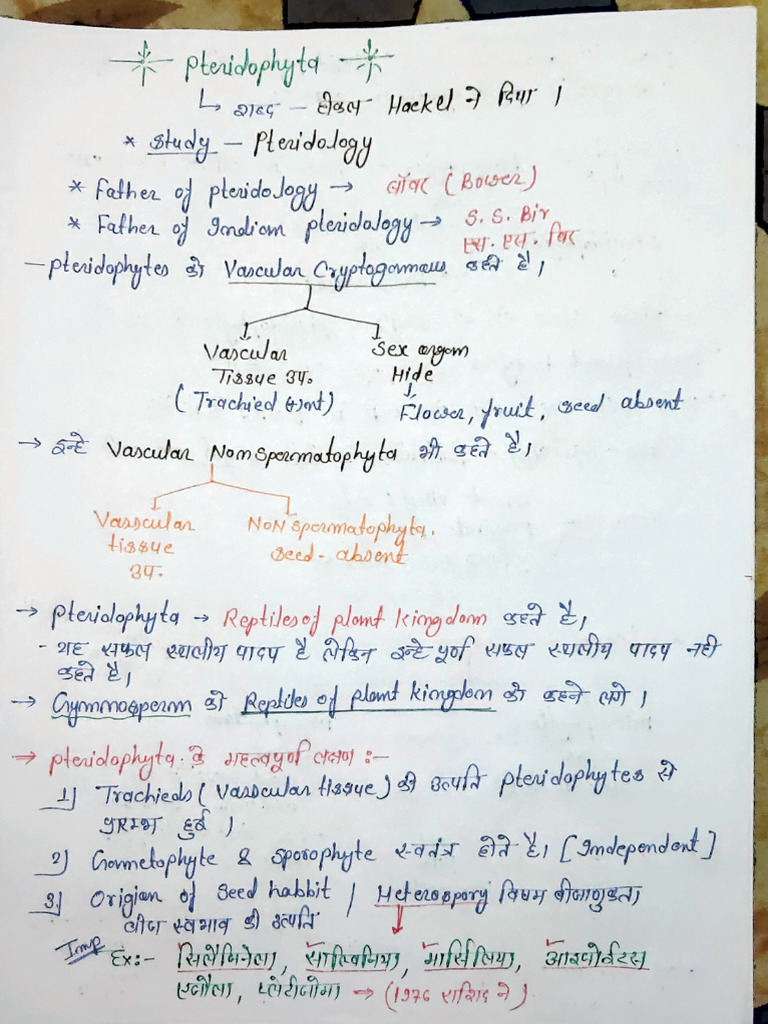 Pteridophyta
↳ शब्द – हीकल Hackel ने दिया ।
* Study – Pteridology
* Father of pteridology → बॉवर (Bower)
* Father of Indian pteridology → S. S. Bir
एस. एस. बिर
– pteridophytes को Vascular Cryptogamous कहते है।
Vascular Tissue उप. (Trachied)
Sex organ Hide
↓
Flower, fruit, seed absent
→ इन्हे Vascular Nonspermatophyta भी कहते है।
Vascular tissue उप.
NoN Spermatophyta. seed - absent
→ pteridophyta → Reptiles of plant kingdom कहते है।
- यह सफल स्थलीय पादप है लेकिन इन्हे पूर्ण सफल स्थलीय पादप नही
कहते है।
→ Gymnosperm को Reptiles of plant kingdom को कहने लगे ।
→ pteridophyta के महत्वपूर्ण लक्षण :-
1) Trachieds (Vascular tissue) की उत्पति pteridophytes से
प्रारम्भ हुई ।
2) Gametophyte & sporophyte स्वतंत्र होते है। [Independent]
3) Origian of seed habbit / Heterospory विषम बीजाणुकता
बीज स्वभाव की उत्पति
Imp Ex:- सिलैजिनेला, साल्विनिया, मार्सिलिया, आइसोईटस
एजोला, प्लेटीजोमा → (1976 राशिद ने)